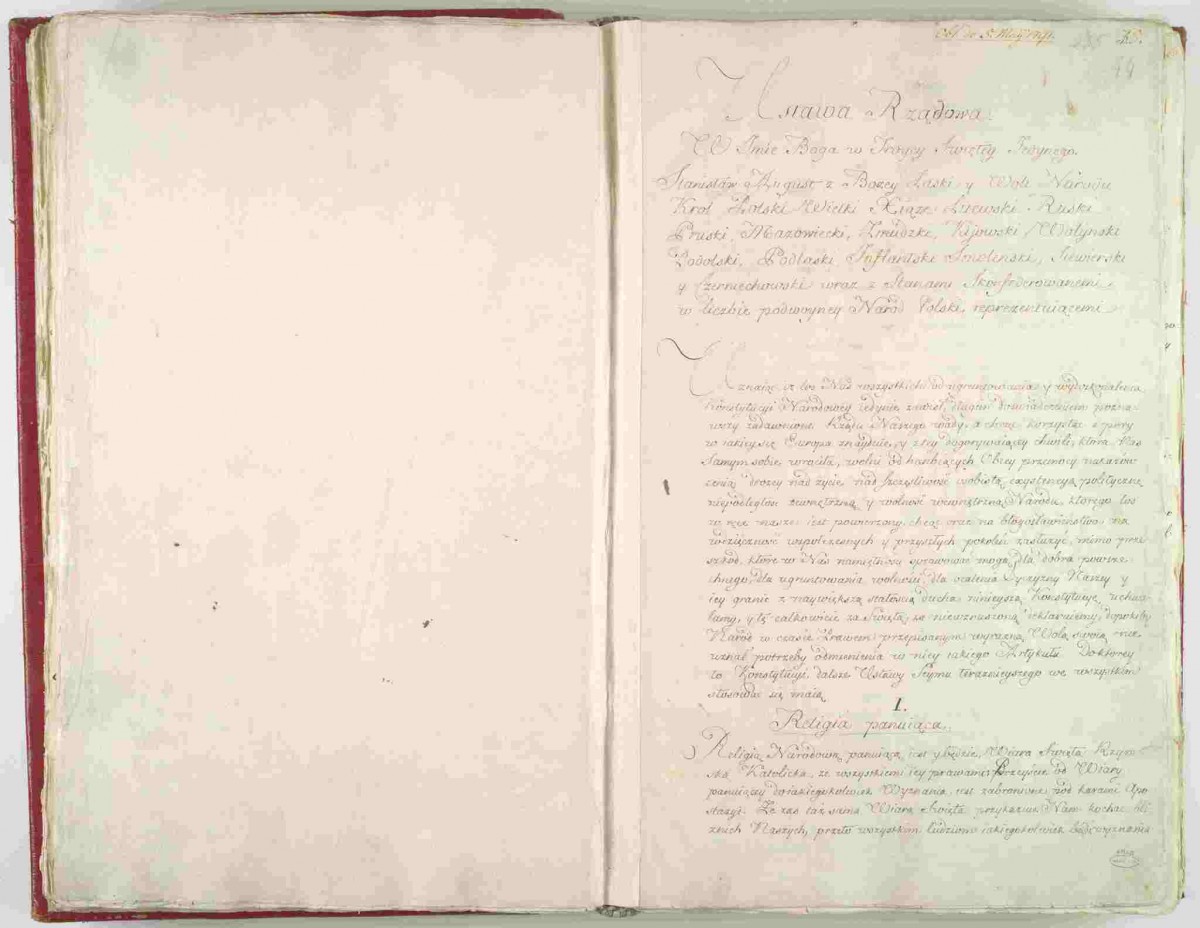 Obl. do 5. Maij 1791.
35.
44
Ustawa Rządowa.
W Imie Boga w Tróycy Swiętey Jedynego.
Stanisław August z Bożey Łaski y Woli Narodu
Krol Polski Wielki Xiąże Litewski Ruski
Pruski, Mazowiecki, Zmudzki, Kijowski, Wołyński
Podolski, Podlaski, Inflantski Smolenski, Siewierski
y Czerniechowski wraz z Stanami Skonfederowanemi
w liczbie podwoyney Naród Polski reprezentuiącemi
Uznaiąc, iż los Nas wszystkich od ugruntowania y wydoskonalenia
Konstytucyi Narodowey iedynie zawisł, długim doświadczeniem pozna-
wszy zadawnione Rządu Naszego wady, a chcąc korzystać z pory
w iakiey się Europa znayduie, y z tey dogorywaiącey chwili, która Nas
samym sobie wróciła, wolni od hańbiących Obcey przemocy nakazów
ceniąc drożey nad życie, nad szczęśliwość osobistą, exystencyą polityczną
niepodległość zewnętrzną y wolność wewnętrzną Narodu, którego los
w ręce nasze iest powierzony, chcąc oraz na błogosławieństwo, na
wdzięczność współczesnych y przyszłych pokoleń zasłużyć, mimo prze-
szkód, które w Nas namiętności sprawować mogą, dla dobra powsze-
chnego, dla ugruntowania wolności, dla ocalenia Oyczyzny Naszey y
iey granic z naywiększą stałością ducha ninieyszą Konstytucyę uchwa-
lamy, y tę całkowicie za świętą, za niewzruszoną deklaruiemy, dopókiby
Naród w czasie Prawem przepisanym wyraźną Wolą swoią nie
uznał potrzeby odmienienia w niey iakiego Artykułu. Do którey
to Konstytucyi dalsze Ustawy Seymu teraźnieyszego we wszystkim
stosować się maią.
I.
Religia panuiąca.
Religią Narodową panuiącą iest y będzie Wiara Swięta Rzym-
ska Katolicka, ze wszystkiemi iey prawami. Przeyście od Wiary
panuiącey do iakiegokolwiek Wyznania iest zabronione pod karami Apo-
stazyi. Że zaś taż sama Wiara Swięta przykazuie Nam kochać bli-
źnich Naszych, przeto wszystkim ludziom iakiegokolwiek bądź wyznania